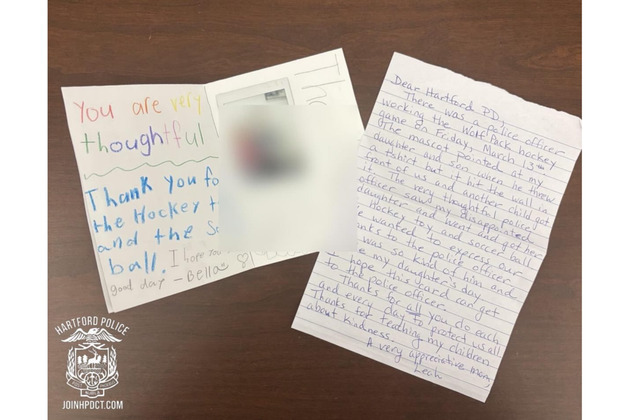 You are very
thoughtful
Thank you fo
the Hockey t
and the So
ball. I hope you
good day -Bella
Dear Hartford PD,
There was a police officer
working the Wolf Pack hockey
game on Friday, March 13th
The mascot pointed at my
daughter and son when he threw
a tshirt but it hit the wall in
front of us and another child got
it. The very thoughtful police
officer saw my disappointed
daughter and went and got her
a Hockey toy and soccer ball
We wanted to express our
thanks to the police officer.
was so kind of him and
made my daughter's day
I hope this card can get
to the police officer.
Thanks for all you do each
and every day to protect us all.
Thanks for teaching my children
about kindness.
A very appreciative mom,
Leah
HARTFORD POLICE
JOINHPDCT.COM